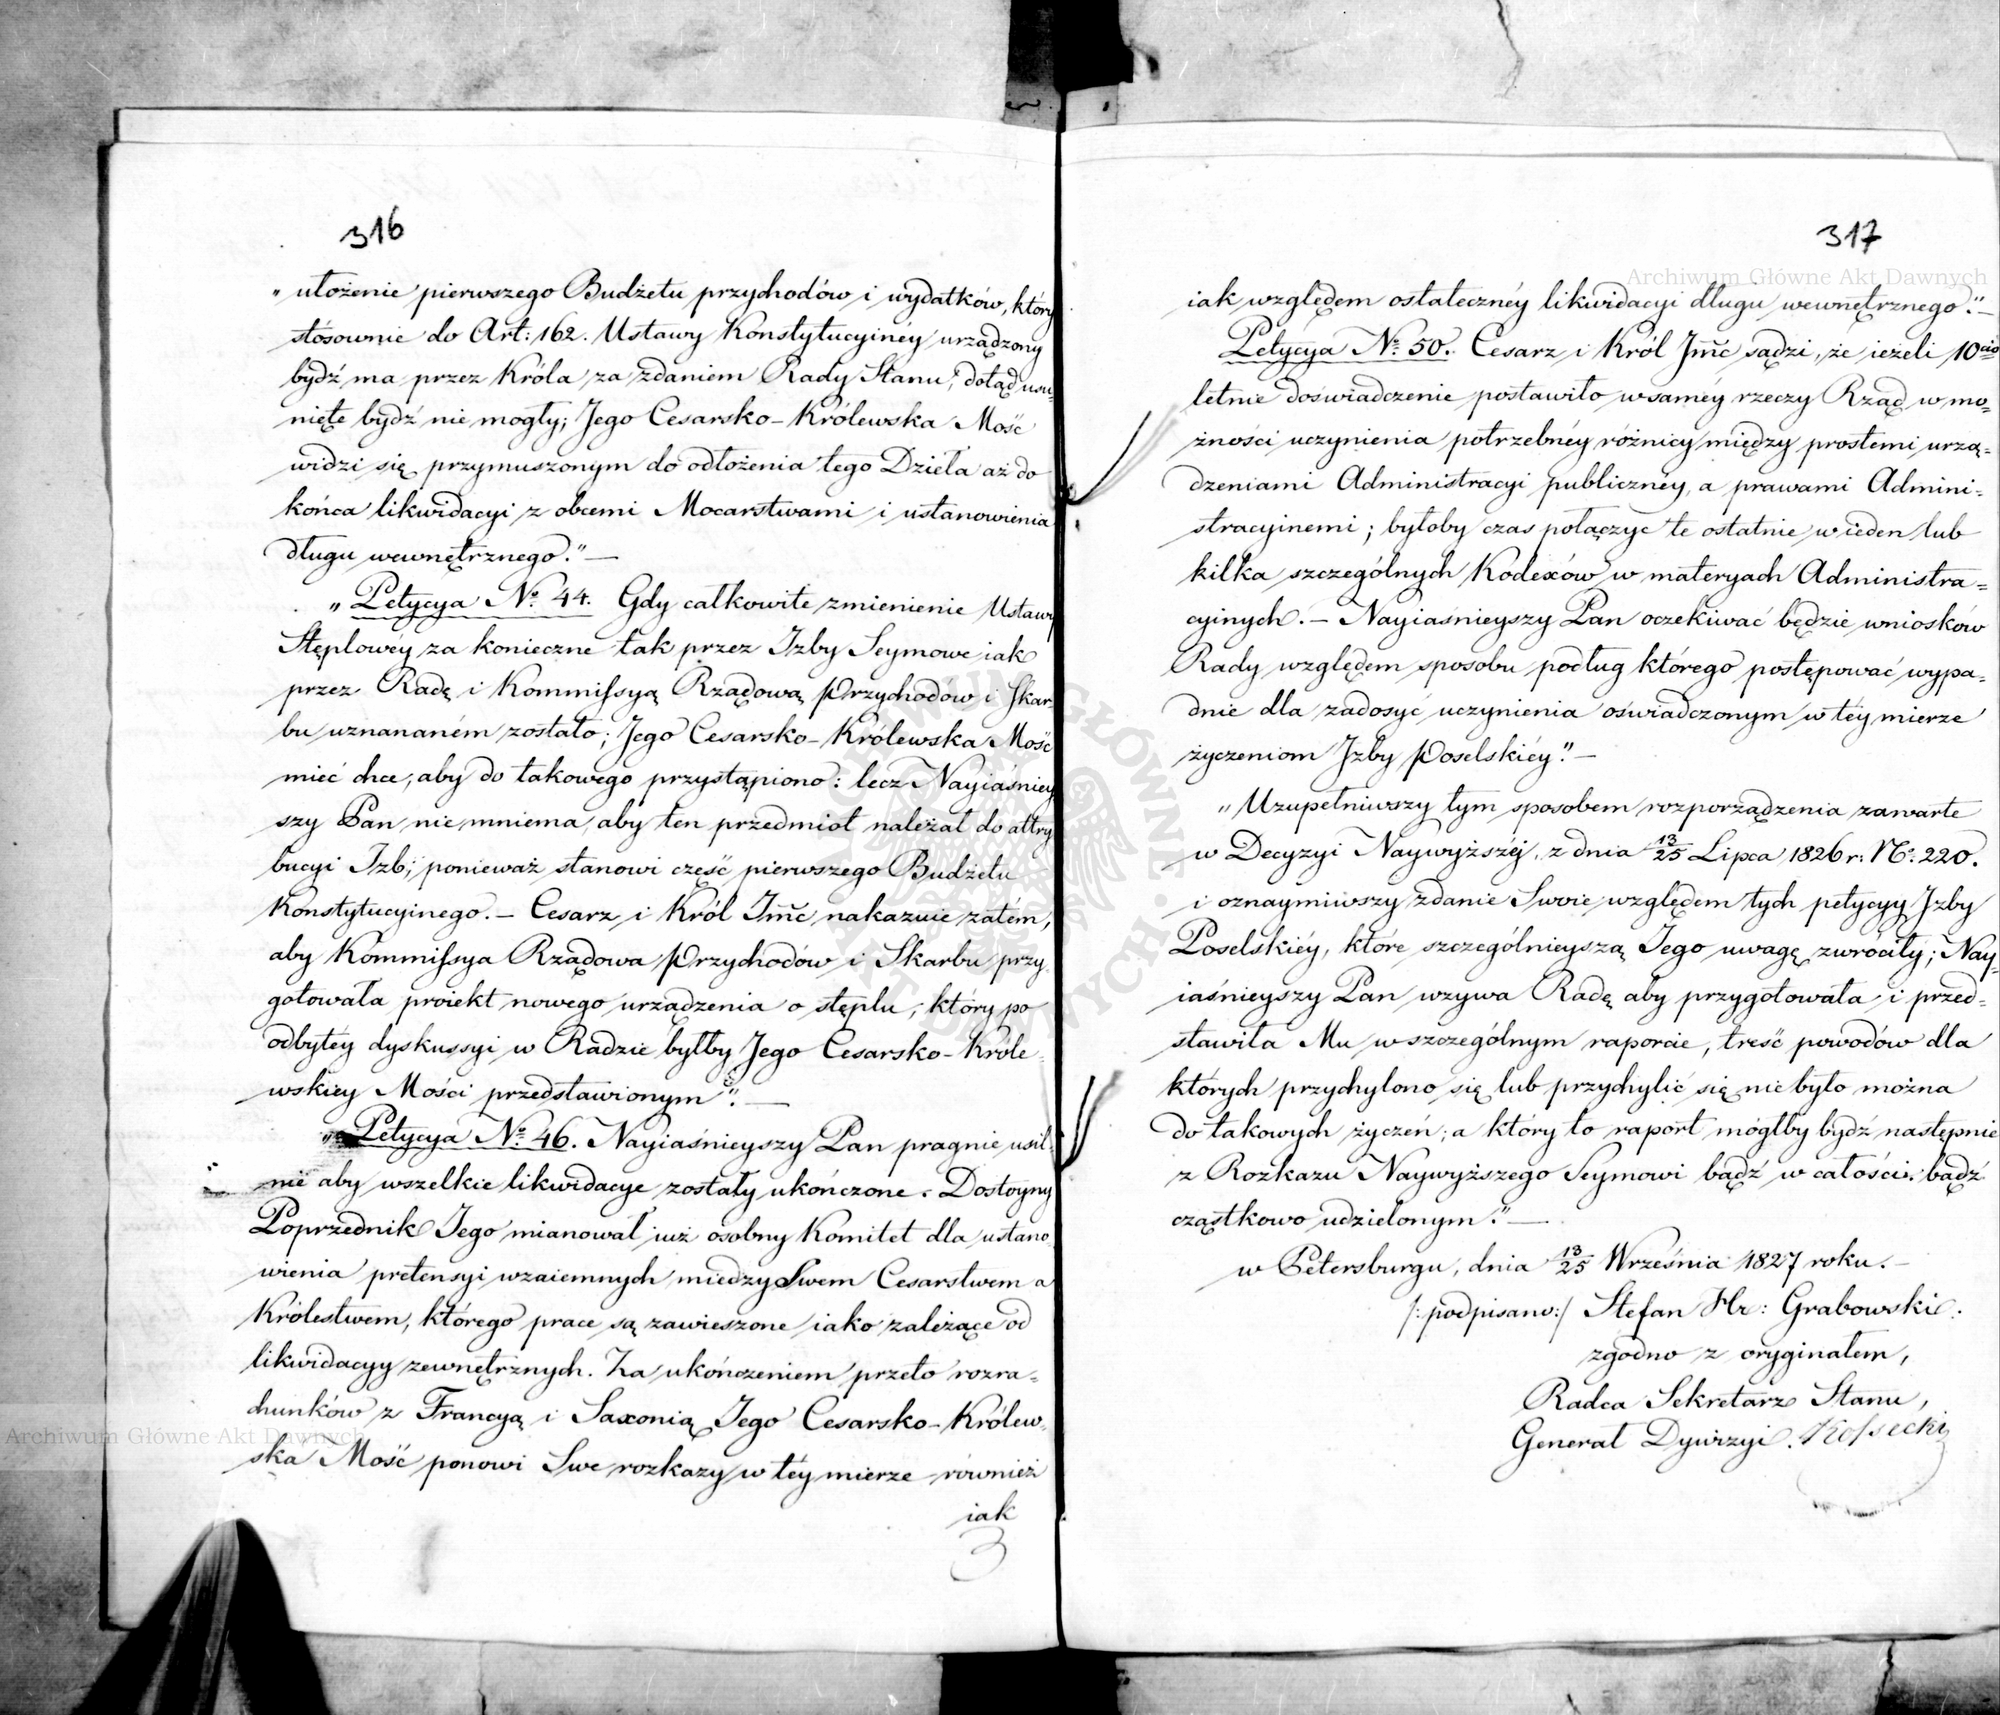 316
„ ułożenie pierwszego Budżetu przychodów i wydatków, który
stósownie do Art: 162. Ustawy Konstytucyinéy urządzony
bydź ma przez Króla za zdaniem Rady Stanu, dotąd usu-
nięte bydź nie mogły; Jego Cesarsko-Królewska Mość
widzi się przymuszonym do odłożenia tego Dzieła aż do
końca likwidacyi z obcemi Mocarstwami i ustanowienia
długu wewnętrznego.” —
„ Petycya No. 44. Gdy całkowite zmienienie Ustawy
Stęplowéy za konieczne tak przez Izby Seymowe iak
przez Radę i Kommissyą Rządową Przychodów i Skar-
bu uznananém zostało; Jego Cesarsko-Królewska Mość
mieć chce, aby do takowego przystąpiono: lecz Nayiaśniey
szy Pan nie mniema, aby ten przedmiot należał do attry
bucyi Izb, ponieważ stanowi część pierwszego Budżetu
Konstytucyinego. — Cesarz i Król Jmć nakazuie zatém,
aby Kommissya Rządowa Przychodów i Skarbu przy
gotowała proiekt nowego urządzenia o stęplu, który po
odbytéy dyskussyi w Radzie byłby Jego Cesarsko-Króle-
wskiey Mości przedstawionym”. —
„ Petycya No. 46. Nayiaśnieyszy Pan pragnie usil-
nie aby wszelkie likwidacye zostały ukończone. Dostoyny
Poprzednik Jego mianował iuż osobny Komitet dla ustano
wienia pretensyi wzaiemnych między Swem Cesarstwem a
Królestwem, którego prace są zawieszone iako zależące od
likwidacyy zewnętrznych. Za ukończeniem przeto rozra-
chunków z Francyą i Saxonią Jego Cesarsko-Królew-
ska Mość ponowi Swe rozkazy w téy mierze również
iak
3
317
iak względem ostatecznéy likwidacyi długu wewnętrznego.” —
Petycya No. 50. Cesarz i Król Jmć sądzi, że ieżeli 10cio
letnie doświadczenie postawiło w saméy rzeczy Rząd w mo-
żności uczynienia potrzebnéy różnicy między prostemi urzą-
dzeniami Administracyi publicznéy, a prawami Admini-
stracyinemi; byłoby czas połączyć te ostatnie w ieden lub
kilka szczególnych Kodexów w materyach Administra-
cyinych. — Nayiaśnieyszy Pan oczekiwać będzie wniosków
Rady względem sposobu podług którego postępować wypa-
dnie dla zadosyć uczynienia oświadczonym w téy mierze
życzeniom Izby Poselskiéy.” —
„ Uzupełniwszy tym sposobem rozporządzenia zawarte
w Decyzyi Naywyższéj z dnia 13/25 Lipca 1826 r: No. 220.
i oznaymiwszy zdanie Swoie względem tych petycyy Izby
Poselskiéy, które szczególnieyszą Jego uwagę zwróciły; Nay-
iaśnieyszy Pan wzywa Radę aby przygotowała i przed-
stawiła Mu w szczególnym raporcie, treść powodów dla
których przychylono się lub przychylić się nie było można
do takowych życzeń; a który to raport mógłby bydź następnie
z Rozkazu Naywyższego Seymowi bądź w całości, bądź
cząstkowo udzielonym.” —
w Petersburgu, dnia 13/25 Września 1827 roku. —
/: podpisano :/ Stefan Hr: Grabowski.
zgodno z oryginałem,
Radca Sekretarz Stanu,
Generał Dywizyi. Kossecki
Archiwum Główne Akt Dawnych
Archiwum Główne Akt Dawnych